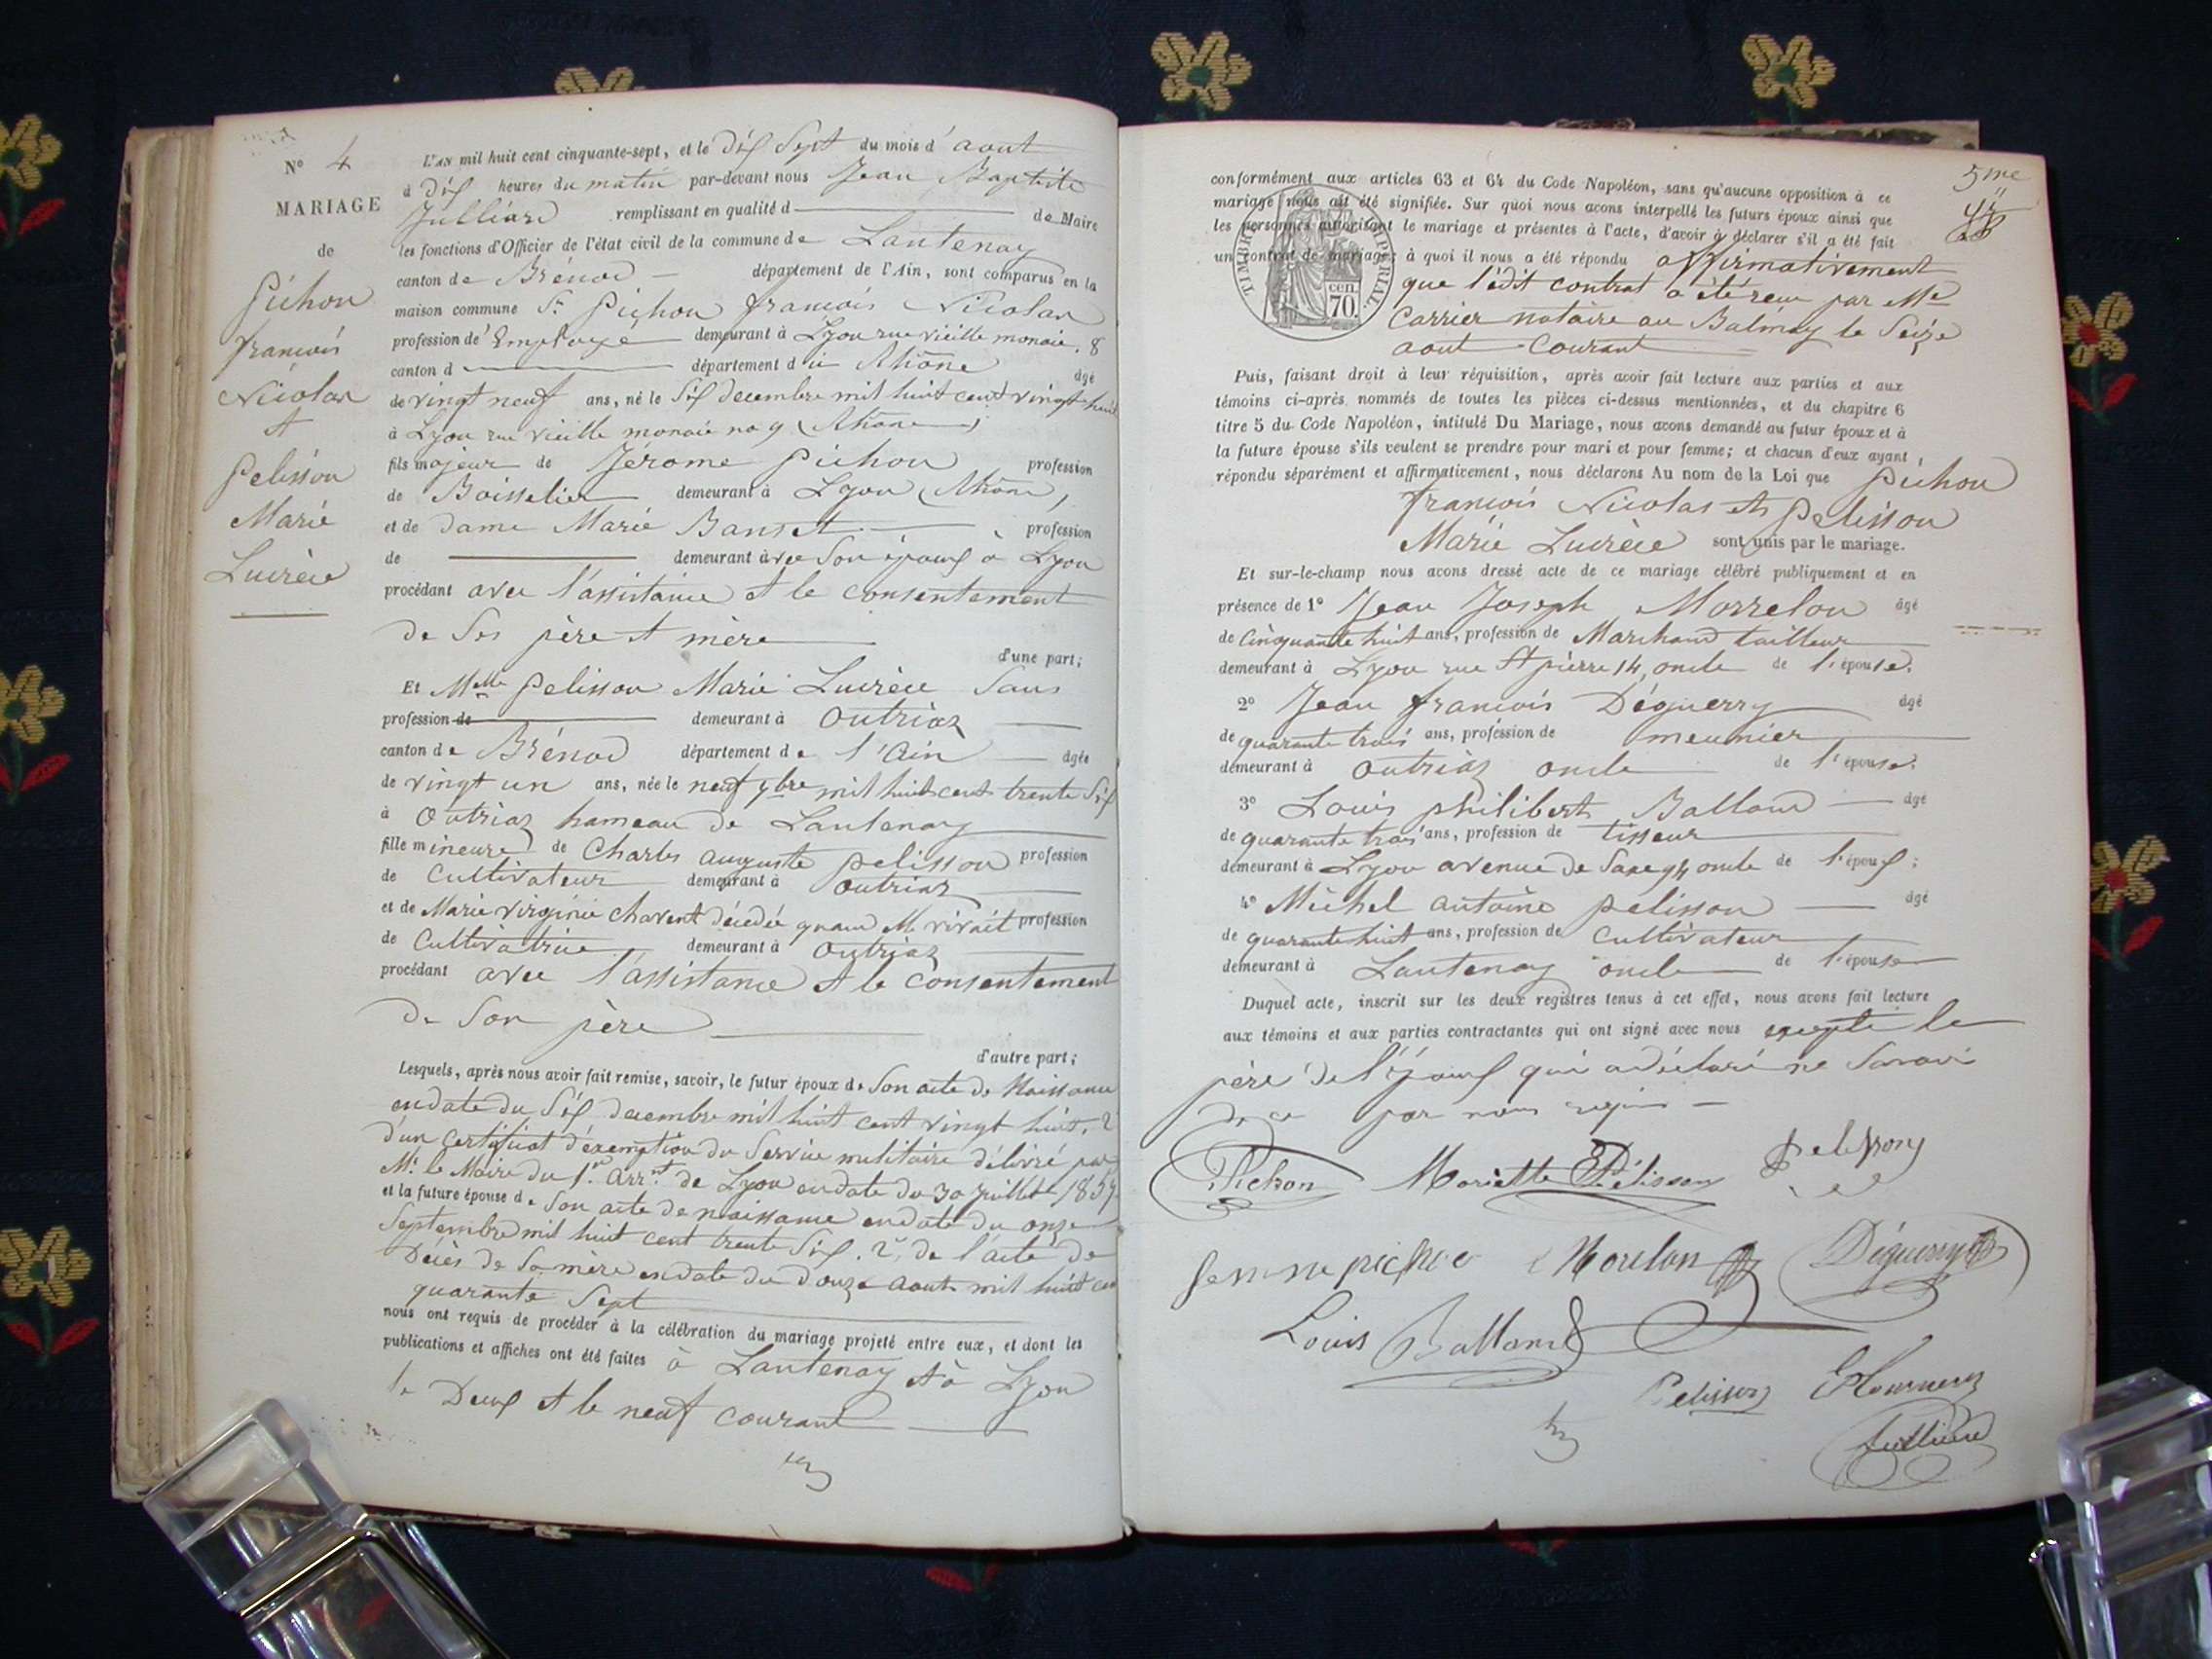 N° 4
MARIAGE
de
Pichon
françois
Nicolas
et
Pelisson
Marie
Lucrèce
L'AN mil huit cent cinquante-sept, et le dix Sept du mois d'aout
à dix heures du matin par-devant nous Jean Baptiste
Julliard remplissant en qualité d de Maire
les fonctions d'Officier de l'état civil de la commune de Lantenay
canton de Brénod département de l'Ain, sont comparus en la
maison commune Sr Pichon françois Nicolas
profession d'Employé demeurant à Lyon rue vieille monaie, 8
canton d département du Rhône âgé
de vingt neuf ans, né le Six decembre mil huit cent vingt huit
à Lyon rue vieille monaie no 9 (Rhône)
fils majeur de Jérome Pichon profession
de Boisselier demeurant à Lyon (Rhône)
et de dame Marie Banset profession
de demeurant avec Son époux à Lyon
procédant avec l'assistance et le consentement
de Ses père et mère
d'une part;
Et Melle Pelisson Marie Lucrèce Sans
profession de demeurant à Outriaz
canton de Brénod département de l'Ain âgée
de vingt un ans, née le neuf 9bre mil huit cent trente Six
à Outriaz hameau de Lantenay
fille mineure de Charles auguste pelisson profession
de Cultivateur demeurant à Outriaz
et de Marie virginie Chavent décédée quand elle vivait profession
de Cultivatrice demeurant à Outriaz
procédant avec l'assistance et le Consentement
de Son père
d'autre part;
Lesquels, après nous avoir fait remise, savoir, le futur époux de Son acte de Naissance
en date du Six decembre mil huit cent vingt huit, 2°
d'un Certificat d'exemption du Service militaire délivré par
Mr le Maire du 1er Arrt de Lyon en date du 30 Juillet 1857
et la future épouse de Son acte de naissance en date du onze
Septembre mil huit cent trente Six. 2° de l'acte de
Décès de Sa mère en date du douze aout mil huit cent
quarante Sept
nous ont requis de procéder à la célébration du mariage projeté entre eux, et dont les
publications et affiches ont été faites à Lantenay et à Lyon
le Deux et le neuf courant
5me
conformément aux articles 63 et 64 du Code Napoléon, sans qu'aucune opposition à ce
mariage nous ait été signifiée. Sur quoi nous avons interpellé les futurs époux ainsi que
les personnes autorisant le mariage et présentes à l'acte, d'avoir à déclarer s'il a été fait
un contrat de mariage; à quoi il nous a été répondu affirmativement
que l'édit contrat a été reçu par Me
Carrier notaire au Balmay le Seize
aout Courant
TIMBRE IMPERIAL
70. cen.
Puis, faisant droit à leur réquisition, après avoir fait lecture aux parties et aux
témoins ci-après nommés de toutes les pièces ci-dessus mentionnées, et du chapitre 6
titre 5 du Code Napoléon, intitulé Du Mariage, nous avons demandé au futur époux et à
la future épouse s'ils veulent se prendre pour mari et pour femme; et chacun d'eux ayant
répondu séparément et affirmativement, nous déclarons Au nom de la Loi que Pichon
françois Nicolas et Pelisson
Marie Lucrèce sont unis par le mariage.
Et sur-le-champ nous avons dressé acte de ce mariage célébré publiquement et en
présence de 1° Jean Joseph Morrelon âgé
de Cinquante huit ans, profession de Marchand tailleur
demeurant à Lyon rue St pierre 14, oncle de l'épouse.
2° Jean françois Déguerry âgé
de quarante trois ans, profession de meunier
demeurant à Outriaz oncle de l'épouse.
3° Louis philibert Balland âgé
de quarante trois ans, profession de tisseur
demeurant à Lyon avenue de Saxe 94 oncle de l'époux;
4° Michel antoine pelisson âgé
de quarante huit ans, profession de Cultivateur
demeurant à Lantenay oncle de l'épouse
Duquel acte, inscrit sur les deux registres tenus à cet effet, nous avons fait lecture
aux témoins et aux parties contractantes qui ont signé avec nous excepté le
père de l'époux qui a déclaré ne Savoir
de ce par nous requis
Pichon Mariette Pélisson Pelisson
femme pichon Morelon Déguerry
Louis Balland
Pelisson
Julliard